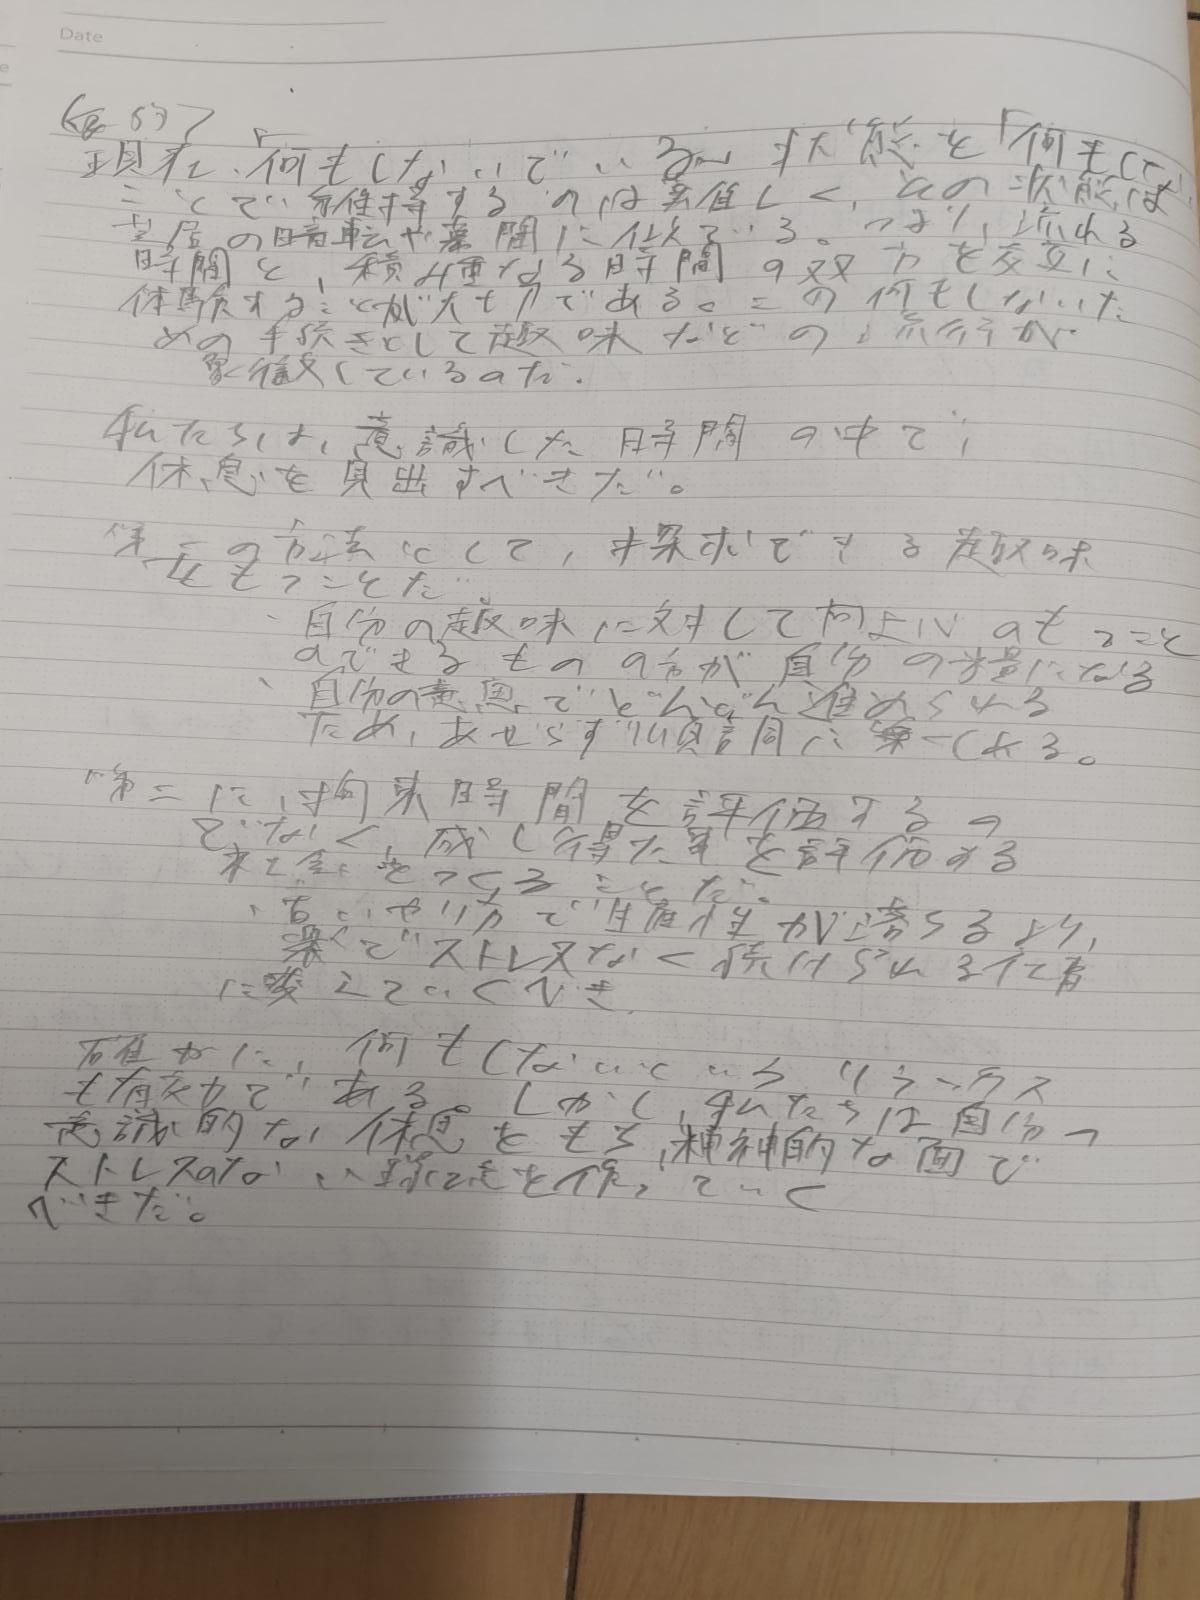 Date
現在、「何もしないでいる」状態を「何もしない
ことで維持するのは難しく、この状態は
芝居の暗転や幕間に似ている。つまり、流れる
時間と、積み重なる時間の双方を交互に
体験することが大切である。この何もしないた
めの手続きとして趣味などの流行が
象徴しているのだ。
私たちは、意識した時間の中で
休息を見出すべきだ。
第一の方法として、探求できる趣味
をもつことだ。
・自分の趣味に対して何よい のもつこと
のできるものの方が自分の糧になる
・自分の意思でどんどん進められる
ため、あせらず順調に楽しめる。
第二に、拘束時間を評価するの
でなく、成し得た事を評価する
をつくることだ。
・古いやり方で生産性が落ちるより、
楽でストレスなく続けられる
に変えていくべき
確かに、何もしないというリラックス
も有効である。しかし、私たちは自分の
意識的な休息をもち、精神的な面で
ストレスのない環境を作っていく
べきだ。